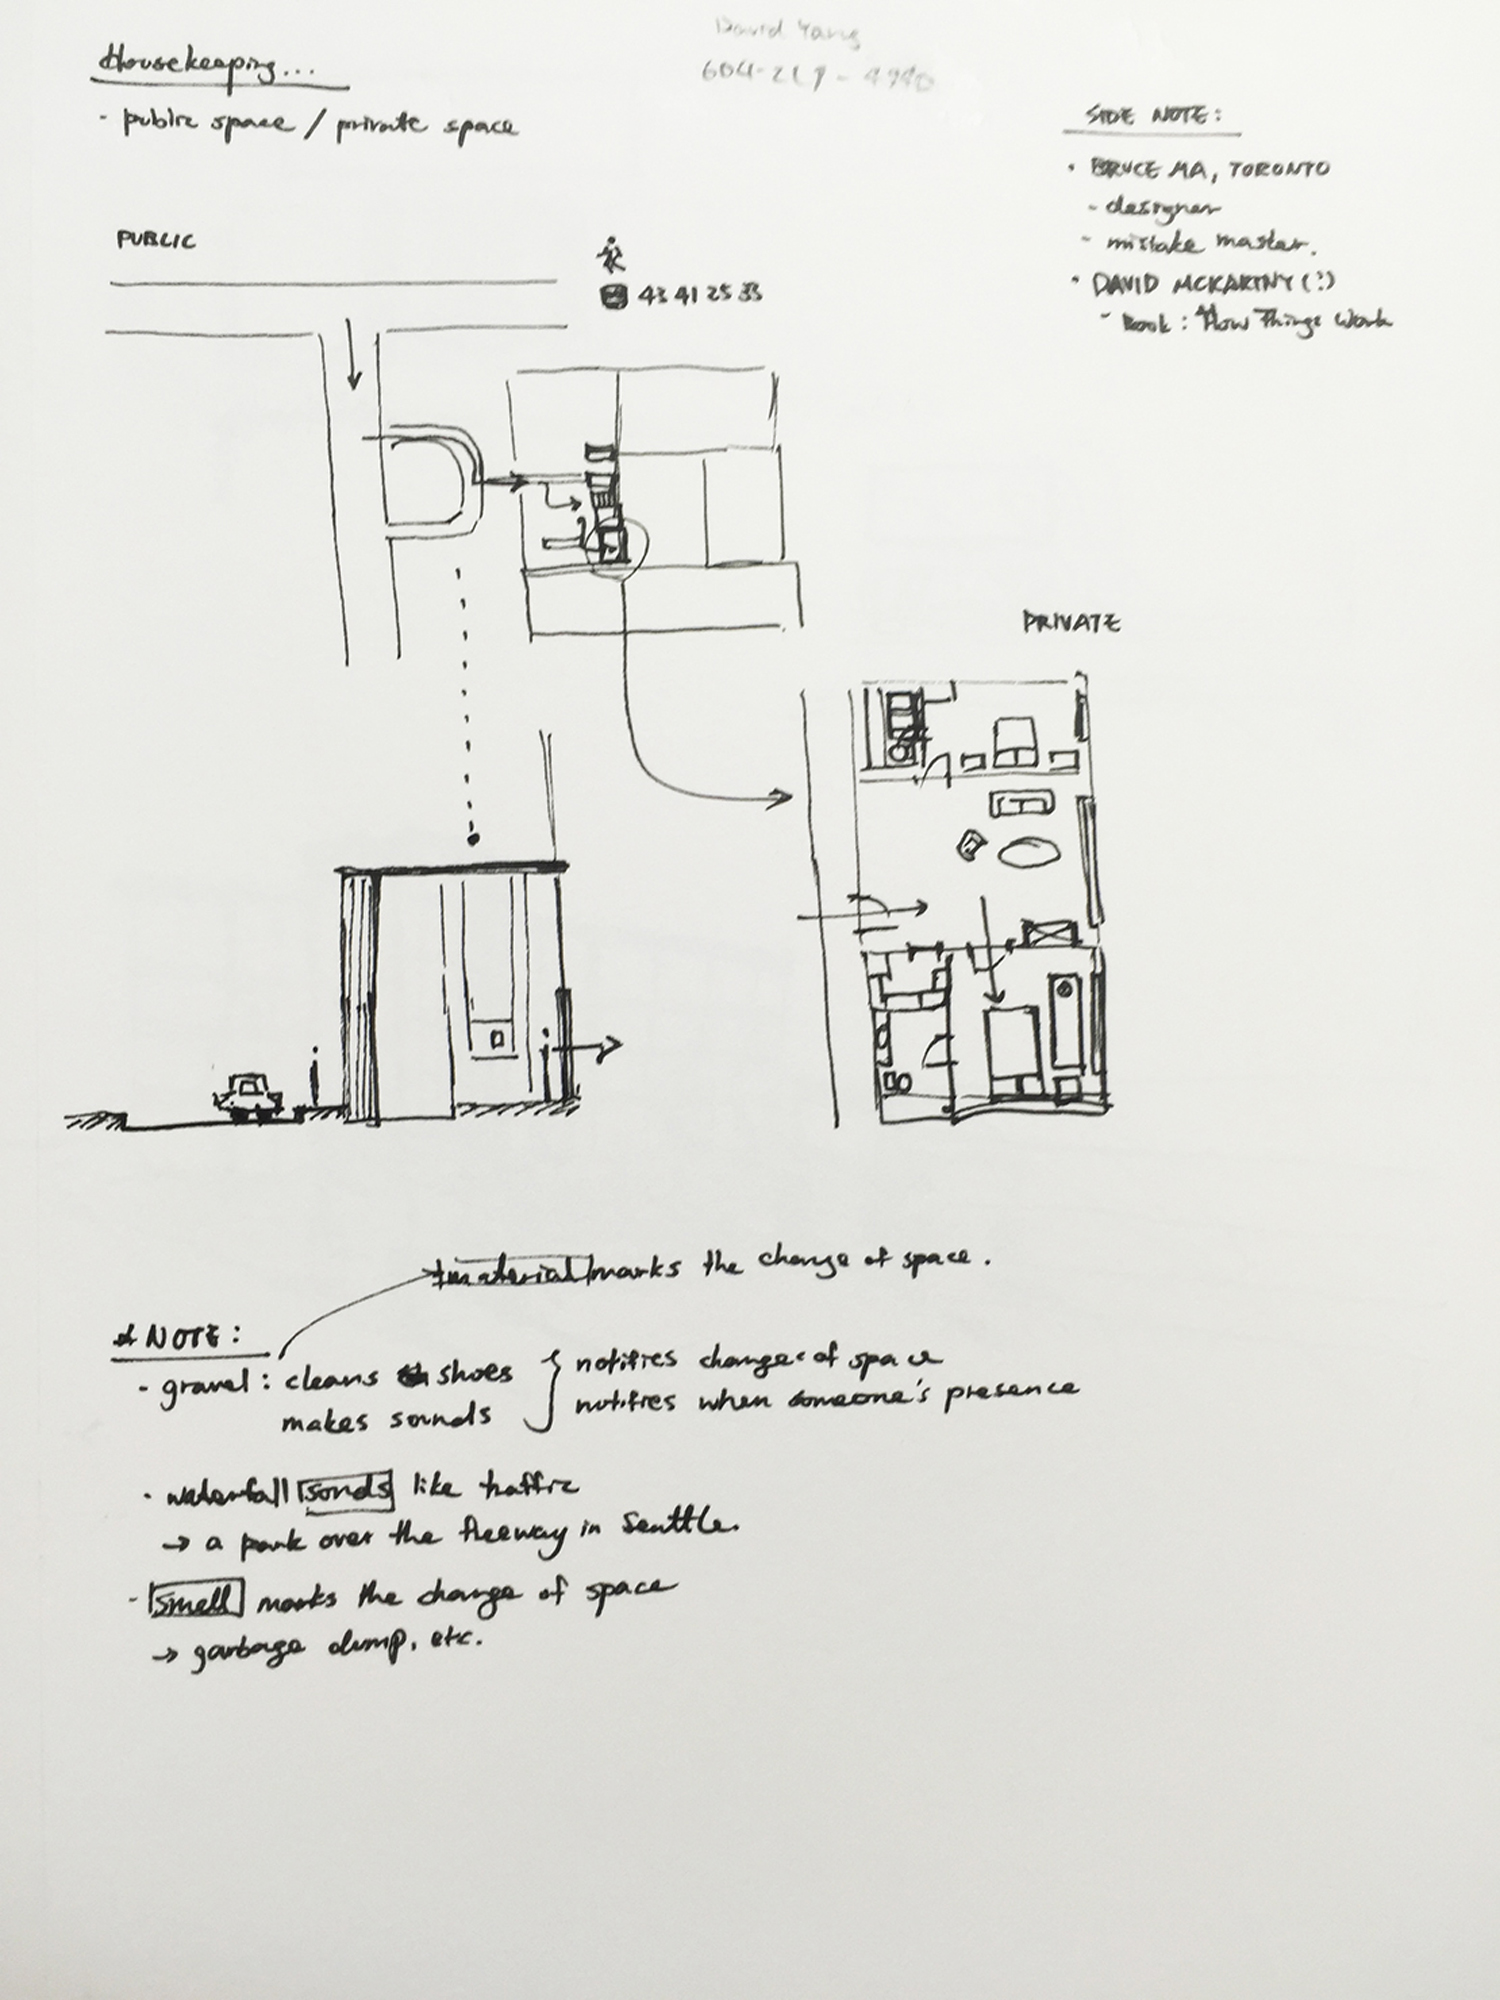 Housekeeping...
- public space / private space
David Yang
SIDE NOTE:
• BRUCE MA, TORONTO
- designer
- mistake master.
• DAVID MCKARTNY (?)
- Book: How Things Work
PUBLIC
43 41 25 33
PRIVATE
material marks the change of space.
NOTE:
- gravel: cleans shoes
makes sounds
notifies changes of space
notifies when someone's presence
- waterfall sonds like traffic
→ a park over the freeway in Seattle.
- smell marks the change of space
→ garbage dump, etc.